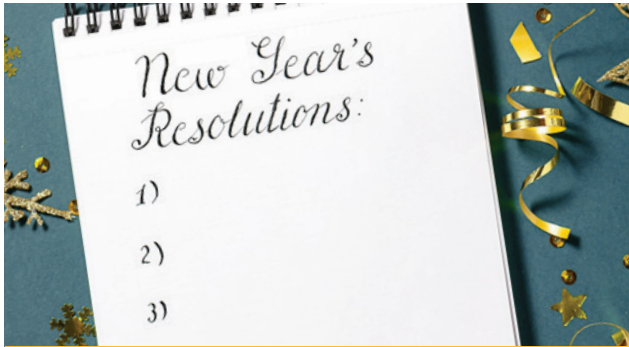 New Year's
Resolutions:
1)
2)
3)